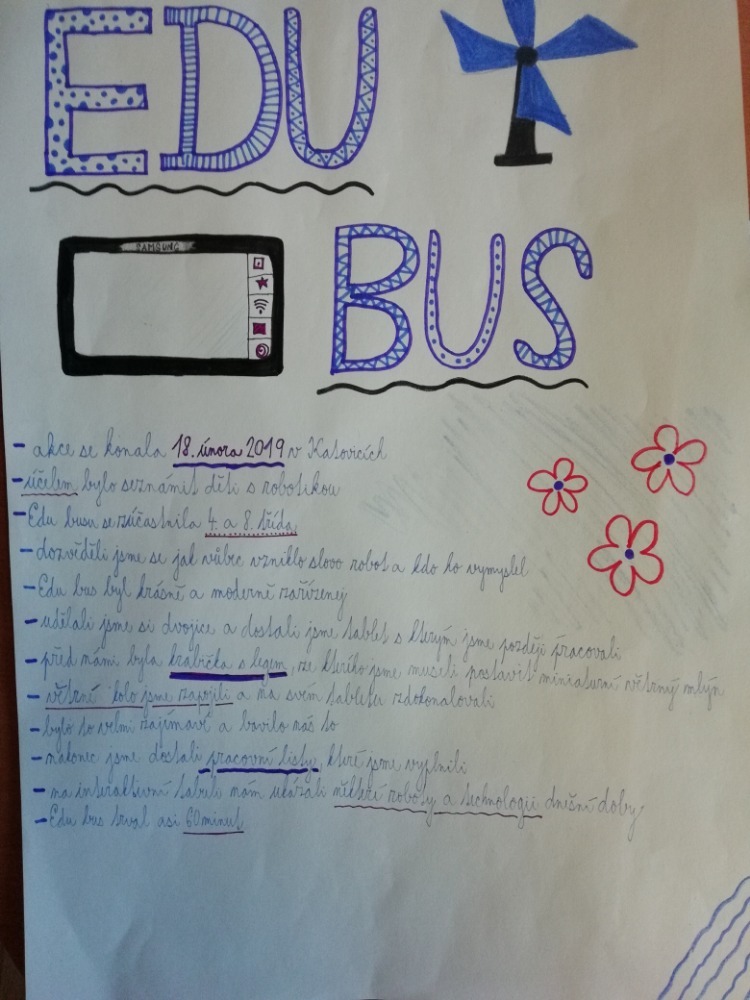 EDU
SAMSUNG
BUS
- akce se konala 18. února 2019 v Katovicích
- účelem bylo seznámit děti s robotikou
- Edu busu se zúčastnila 4. a 8. třída
- dozvěděli jsme se jak vůbec vzniklo slovo robot a kdo ho vymyslel
- Edu bus byl krásně a moderně zařízenej
- udělali jsme si dvojice a dostali jsme tablet s kterým jsme později pracovali
- před námi byla krabička s legem, ze kterého jsme museli postavit miniaturní větrný mlýn
- větrné kolo jsme zapojili a na svém tabletu zdokonalovali
- bylo to velmi zajímavé a bavilo nás to
- nakonec jsme dostali pracovní listy, které jsme vyplnili
- na interaktivní tabuli nám ukázali některé roboty a technologii dnešní doby
- Edu bus trval asi 60 minut